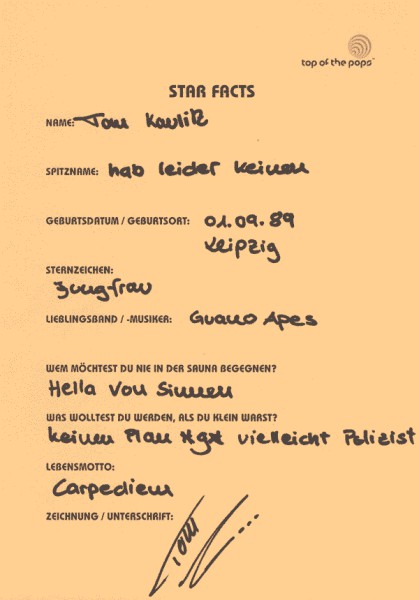 top of the pops™
STAR FACTS
NAME: Tom Kaulitz
SPITZNAME: hab leider keinen
GEBURTSDATUM / GEBURTSORT: 01.09.89
Leipzig
STERNZEICHEN:
Jungfrau
LIEBLINGSBAND / -MUSIKER: Guano Apes
WEM MÖCHTEST DU NIE IN DER SAUNA BEGEGNEN?
Hella Von Sinnen
WAS WOLLTEST DU WERDEN, ALS DU KLEIN WARST?
keinen Plan *g* vielleicht Polizist
LEBENSMOTTO:
Carpediem
ZEICHNUNG / UNTERSCHRIFT:
Tom